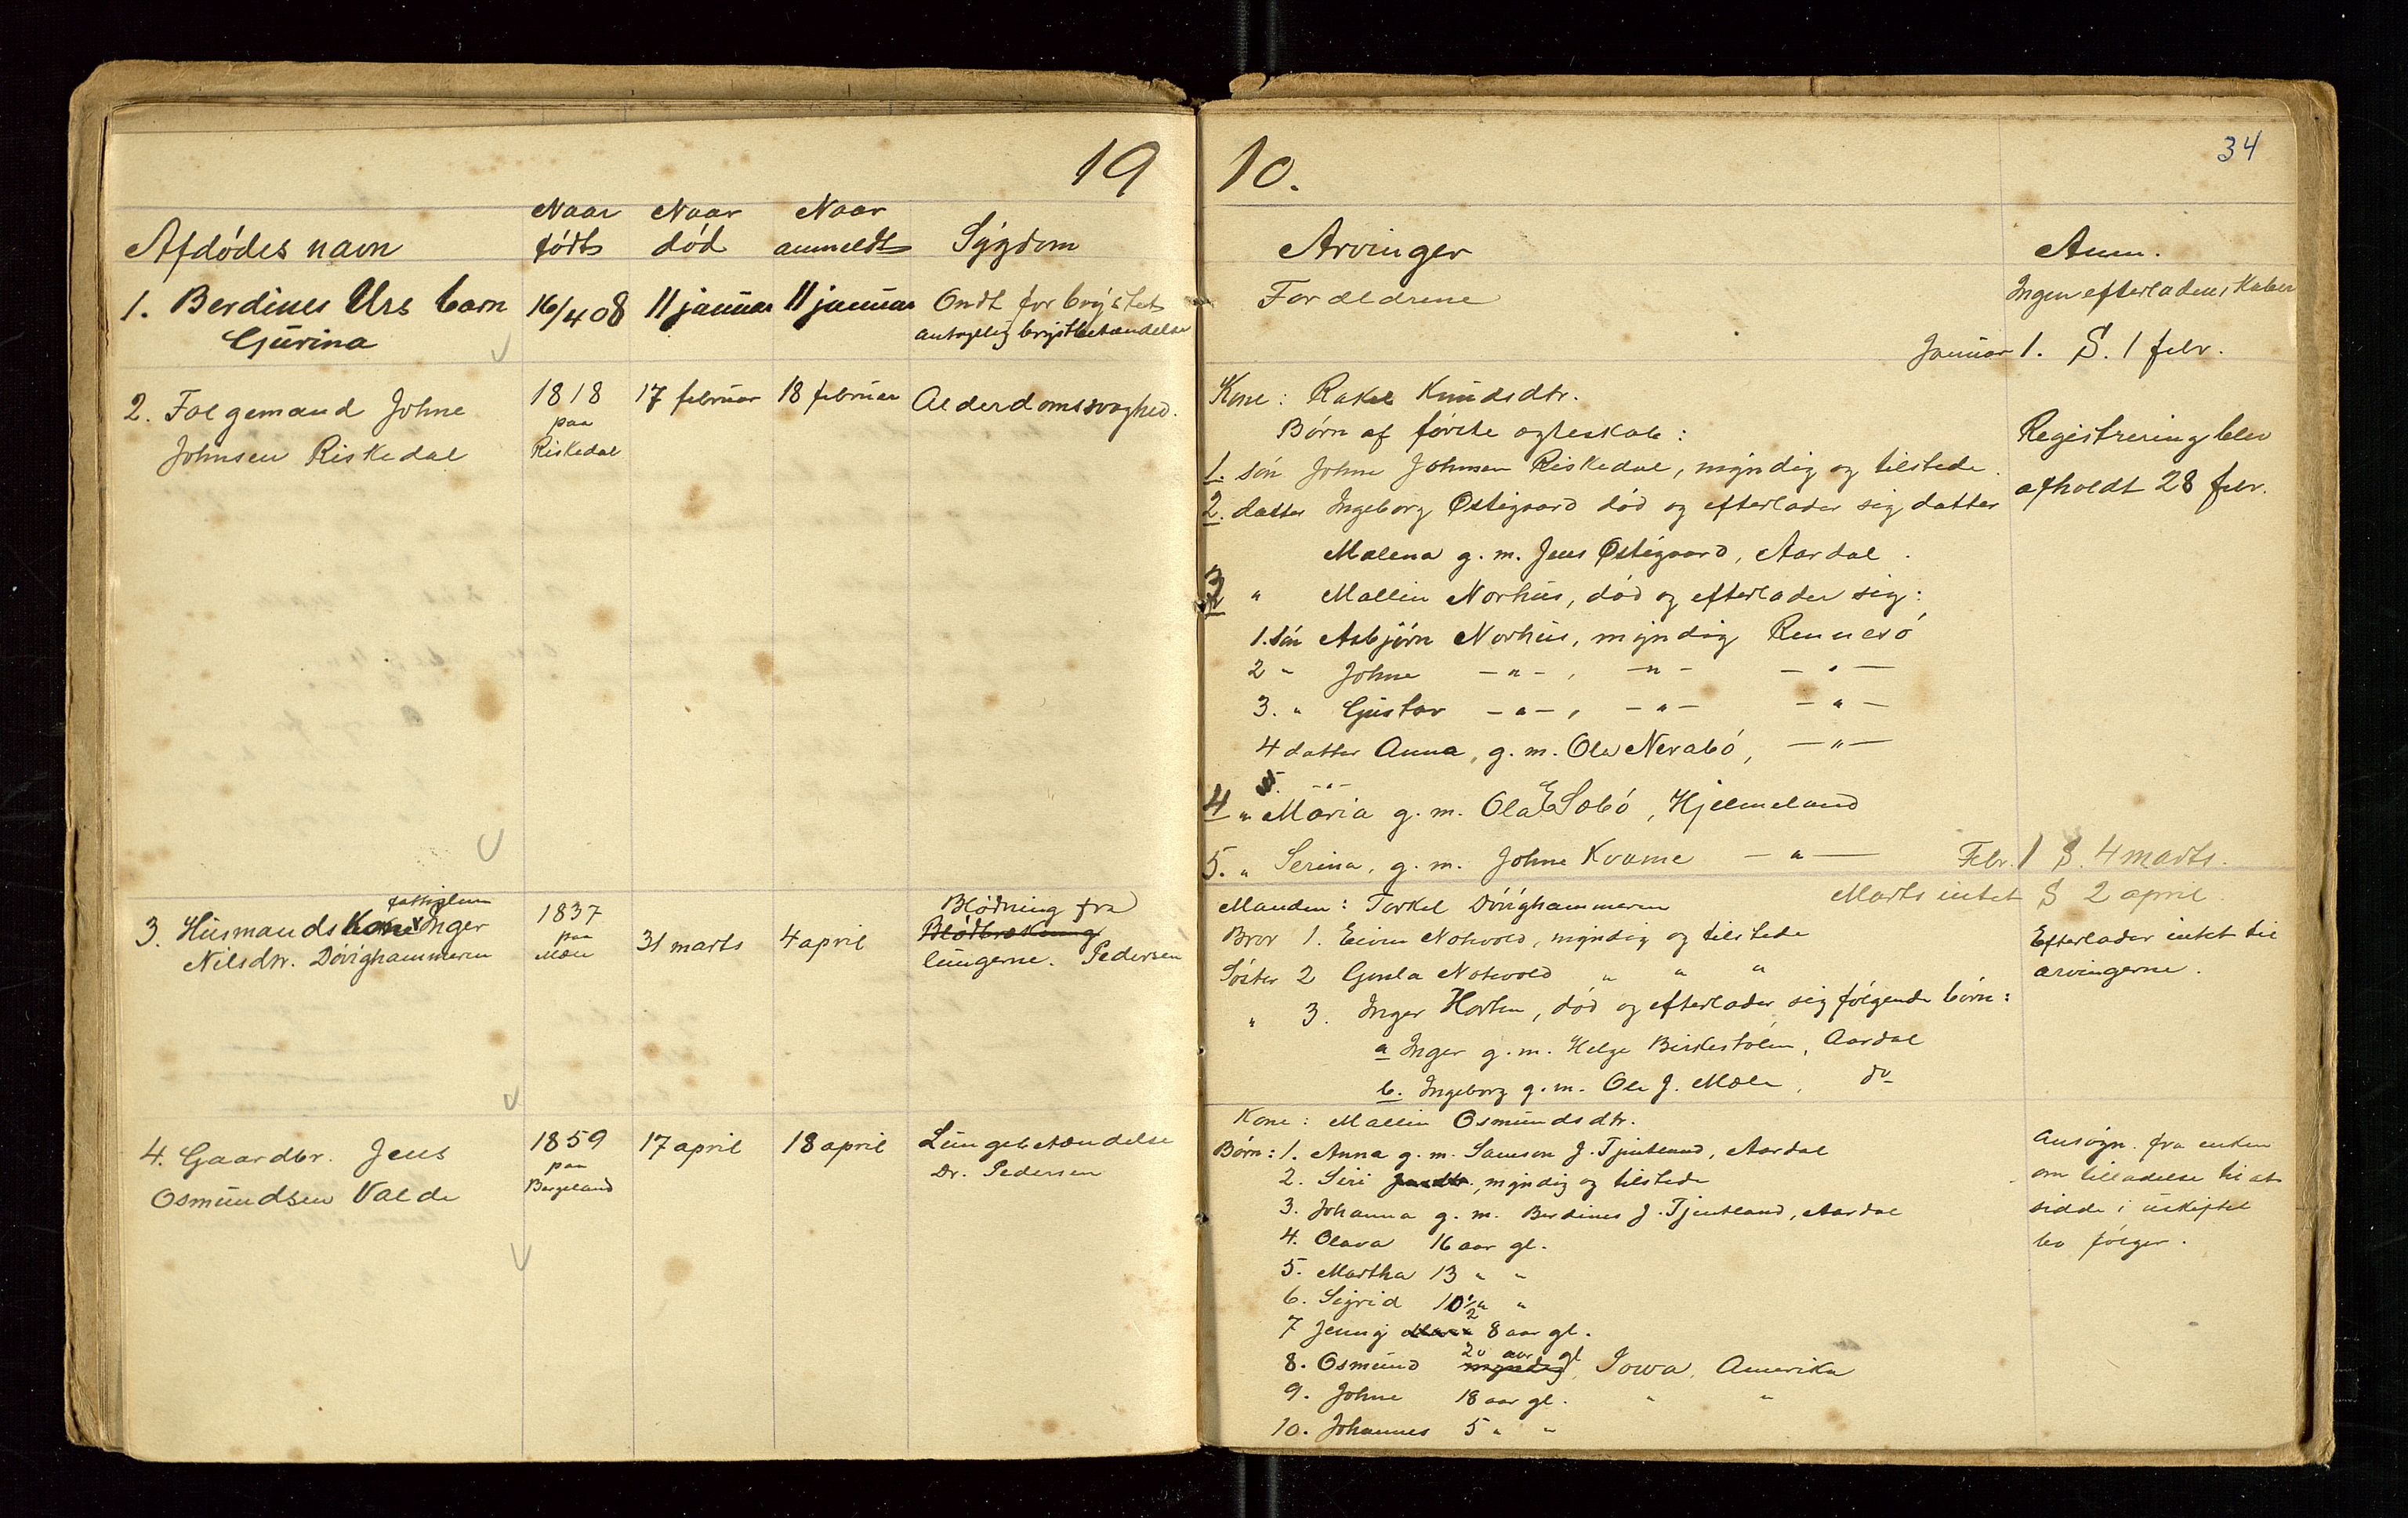 19
10.
34
Afdødes navn
Naar født
Naar død
Naar anmeldt
Sygdom
Arvinger
Anm.
1. Berdines Urs barn
Gurina
16/4 08
11 januar
11 januar
Ondt for brystet
antagelig brystbetændelse
Forældrene
Ingen efterladenskaber
Januar 1. S. 1 febr.
2. Folgemand Johne
Johnsen Riskedal
1818
paa
Riskedal
17 februar
18 februar
Alderdomssvaghed.
Kone: Rakel Knudsdtr.
Børn af første ægteskab:
1. søn Johne Johnsen Riskedal, myndig og tilstede.
2. datter Ingeborg Østigaard død og efterlader sig datter
Malena g. m. Jens Østigaard, Aardal.
3 " Mallin Norhus, død og efterlader sig:
1. søn Asbjørn Norhus, myndig Rennesø
2 " Johne - " - , - " - - " -
3. " Gustav - " - , - " - - " -
4 datter Anna, g. m. Ola Nerabø, - " -
5. - " -
4 " Maria g. m. Ola E Sæbø, Hjelmeland
5. " Serina, g. m. Johne Kvame - " -
Registrering blev
afholdt 28 febr.
Febr. 1 S. 4 marts.
Marts intet S 2 april
3. Husmandskone fattiglem Inger
Nilsdtr. Døvighammeren
1837
paa
Mæle
31 marts
4 april
Blødning fra
Blodbrækning
lungerne. Pedersen
Manden: Torkel Døvighammeren
Bror 1. Eivin Notvold, myndig og tilstede
Søster 2 Gunla Notvold " " "
" 3. Inger Horten, død og efterlader sig følgende børn:
a Inger g. m. Helge Birkestølen, Aardal
b. Ingeborg g. m. Ole J. Mæle, do
Efterlader intet til
arvingerne.
4. Gaardbr. Jens
Osmundsen Valde
1859
paa
Bergeland
17 april
18 april
Lungebetændelse
Dr. Pedersen
Kone: Mallin Osmundsdtr.
Børn: 1. Anna g. m. Samson J. Tjentland, Aardal
2. Siri Jensdtr., myndig og tilstede
3. Johanna g. m. Berdines J. Tjentland, Aardal
4. Olava 16 aar gl.
5. Martha 13 " "
6. Sigrid 10 1/2 " "
7 Jenny 8 aar gl.
8. Osmund myndig 20 aar gl, Iowa, Amerika
9. Johne 18 aar gl. " "
10. Johannes 5 " "
Ansøgn. fra enken
om tilladelse til at
sidde i uskiftet
bo følger.